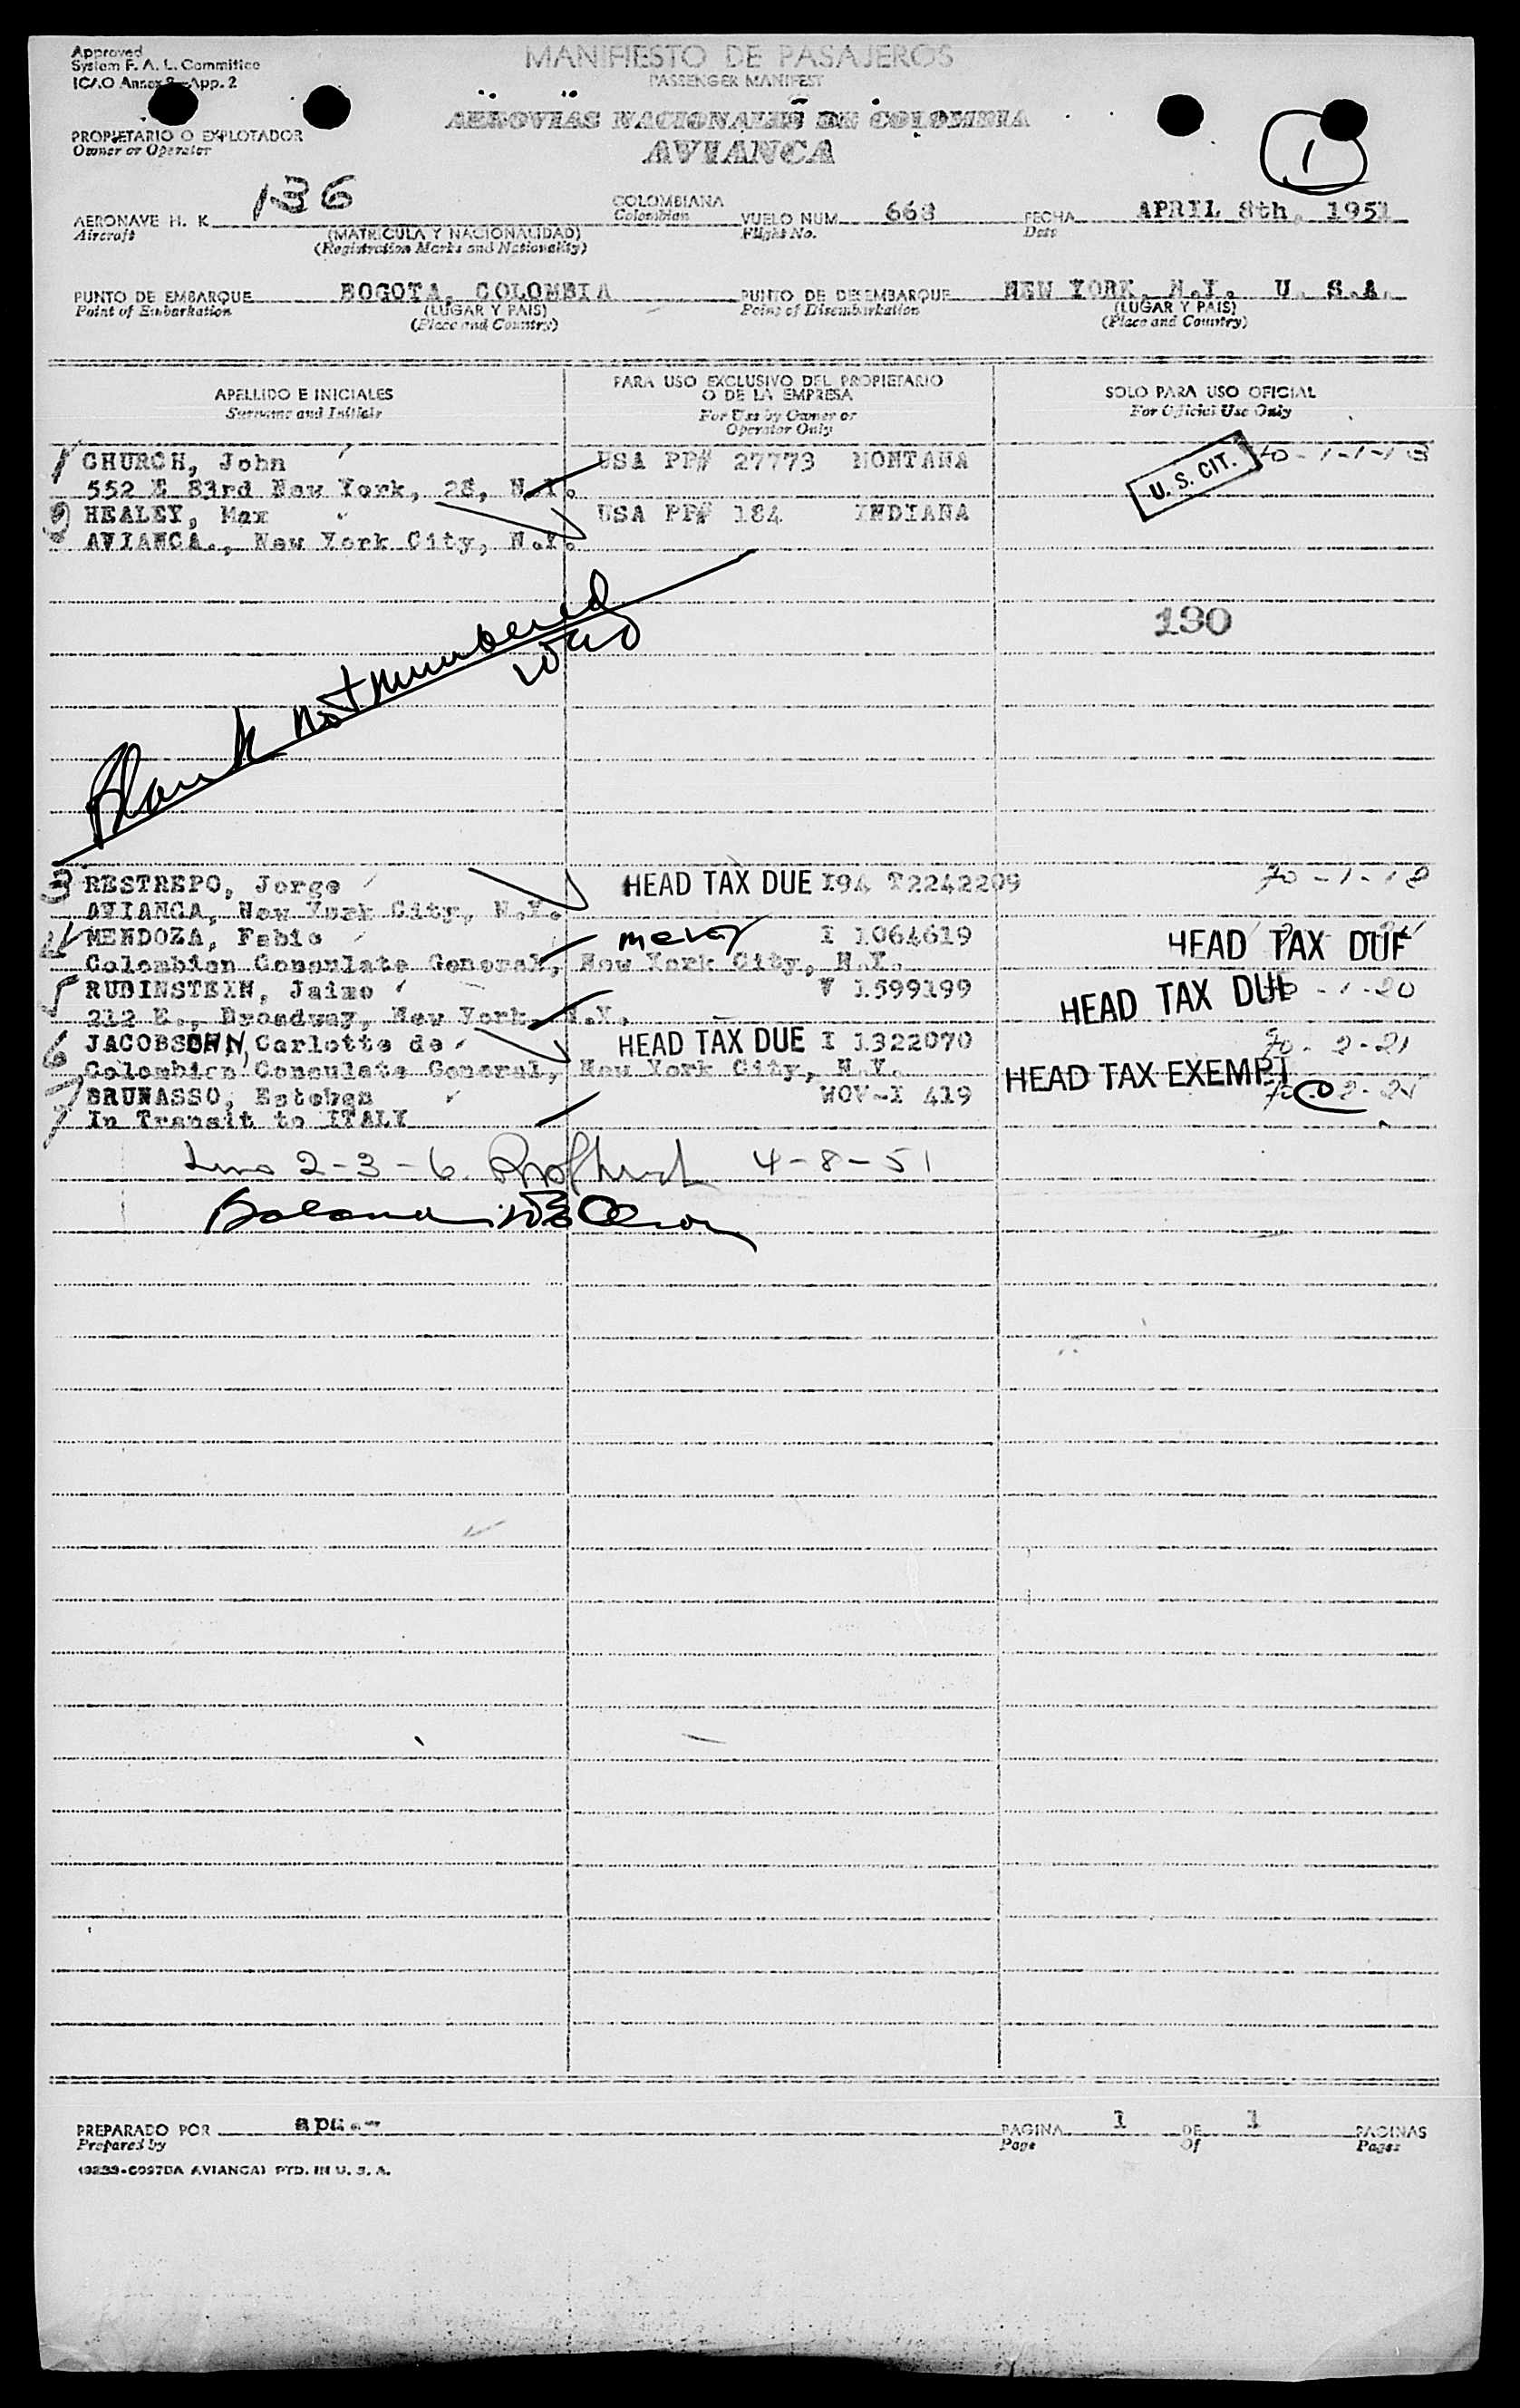 Approved
System F. A. L. Committee
ICAO Annex 9 - App. 2
MANIFIESTO DE PASAJEROS
PASSENGER MANIFEST
AEROVIAS NACIONALES DE COLOMBIA
AVIANCA
1
PROPIETARIO O EXPLOTADOR
Owner or Operator
AERONAVE H. K. 136 COLOMBIANA VUELO NUM. 668 FECHA APRIL 8th, 1951
Aircraft (MATRICULA Y NACIONALIDAD) Colombian Flight No. Date
(Registration Marks and Nationality)
PUNTO DE EMBARQUE BOGOTA, COLOMBIA PUNTO DE DESEMBARQUE NEW YORK, N.Y. U. S.A.
Point of Embarkation (LUGAR Y PAIS) Point of Disembarkation (LUGAR Y PAIS)
(Place and Country) (Place and Country)
APELLIDO E INICIALES PARA USO EXCLUSIVO DEL PROPIETARIO SOLO PARA USO OFICIAL
Surname and Initials O DE LA EMPRESA For Official Use Only
For Use by Owner or
Operator Only
1 CHURCH, John USA PP# 27773 MONTANA U. S. CIT. 70-1-1-18
552 E 83rd New York, 28, N.Y.
2 HEALEY, Max USA PP# 184 INDIANA
AVIANCA., New York City, N.Y.
190
Blank not numbered
3 RESTREPO, Jorge HEAD TAX DUE I94 T2242209 70-1-18
AVIANCA, New York City, N.Y.
4 MENDOZA, Fabio I 1064619 HEAD TAX DUE
Colombian Consulate General, New York City, N.Y.
5 RUBINSTEIN, Jaime V 1599199 HEAD TAX DUE 70-1-20
212 E., Broadway, New York, N.Y.
6 JACOBSOHN, Carlotta de HEAD TAX DUE I 1322070 70-2-21
Colombian Consulate General, New York City, N.Y. HEAD TAX EXEMPT
7 BRUNASSO, Esteban WOV-I 419
In Transit to ITALY
2-3-6 4-8-51
PREPARADO POR PAGINA 1 DE 1 PAGINAS
Prepared by Page Of Pages
AVIANCA) PTD. IN U. S. A.